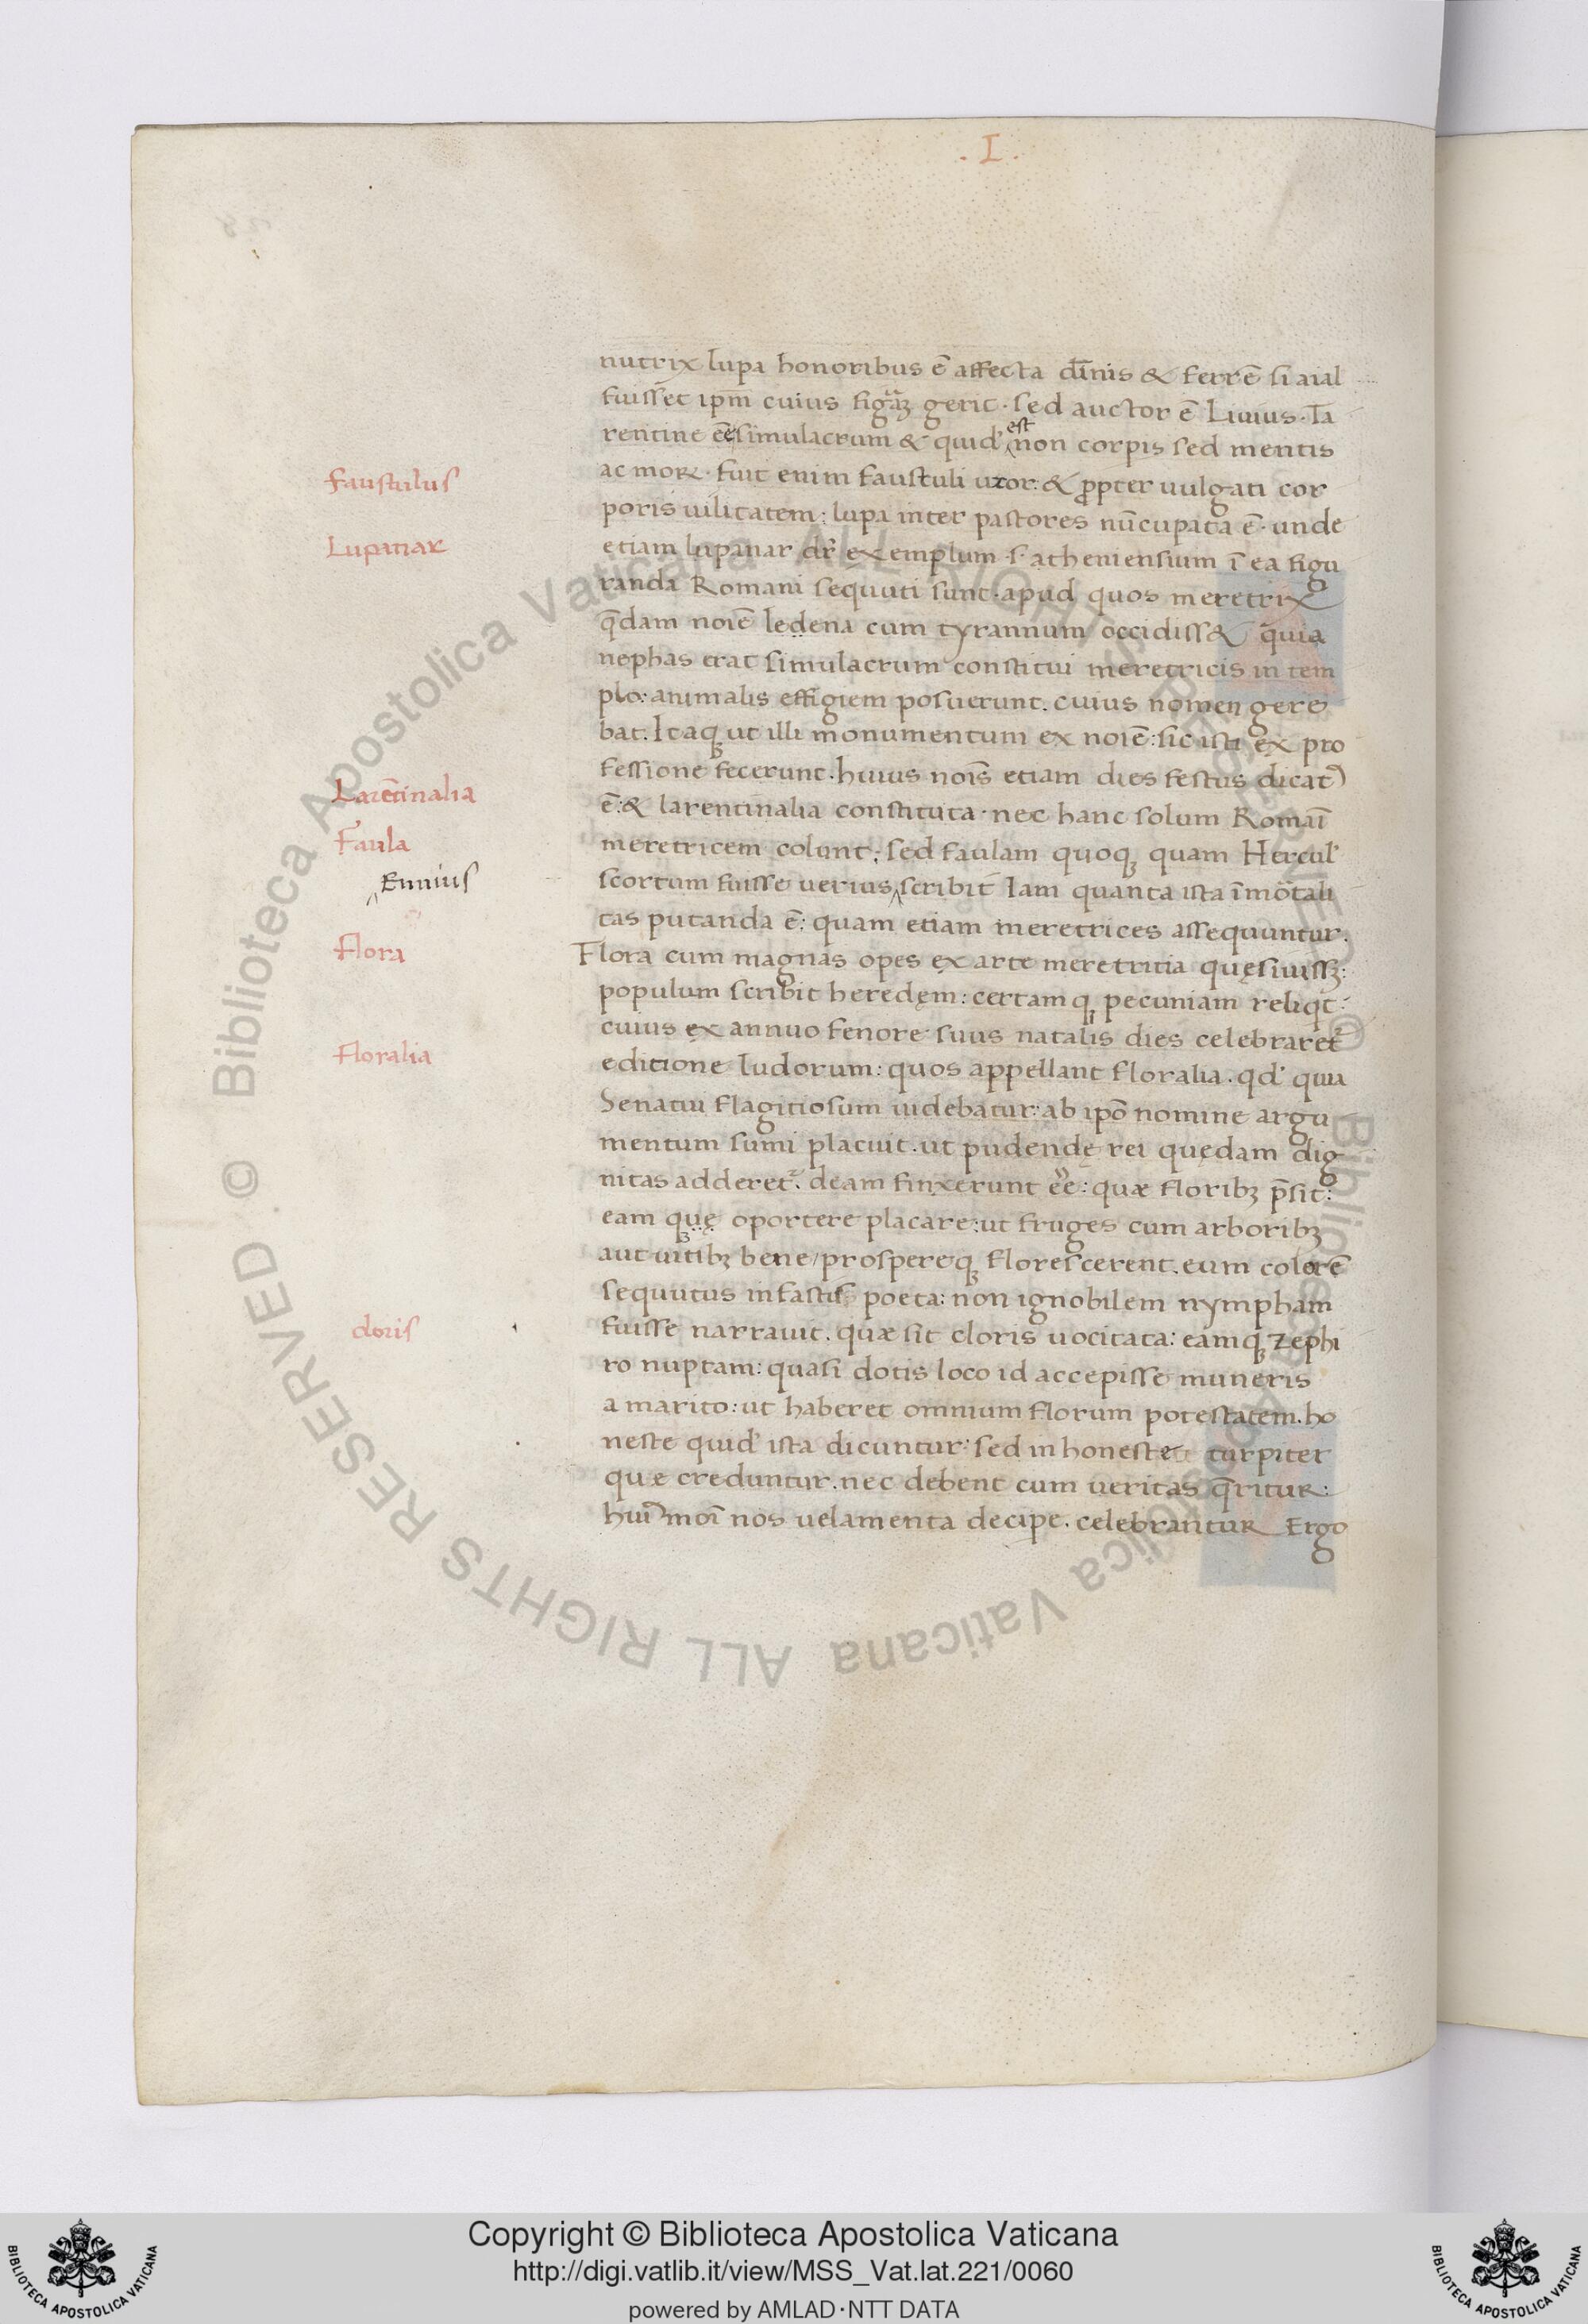 . I .
nutrix lupa honoribus ē affecta dīnis & ferrē si aial
fuisset ipm̄ cuius figaꝝ gerit. sed auctor ē Liuius. Ta
rentine ēe simulacrum & quid' est non corpis sed mentis
ac moꝝ. fuit enim faustuli uxor: & ꝓpter uulgati cor
poris uilitatem: lupa inter pastores nūcupata ē. unde
etiam lupanar dr̄ exemplum s. atheniensium ī ea figu
randa Romani sequuti sunt. apud quos meretrix
q̄dam noīe ledena cum tyrannum occidiss& quia
nephas erat simulacrum constitui meretricis in tem
plo: animalis effigiem posuerunt. cuius nomen gere
bat. Itaqꝫ ut illi monumentum ex noīe: sic isti ex pro
fessione fecerunt. huius nois̄ etiam dies festus dicatꝰ
ē: & larentinalia constituta. nec hanc solum Romaī
meretricem colunt: sed faulam quoqꝫ quam Hercul'
scortum fuisse uerius scribit Iam quanta ista īmōtali
tas putanda ē: quam etiam meretrices assequuntur.
Flora cum magnas opes ex arte meretritia quęsiuissꝫ:
populum scribit heredęm: certam qꝫ pecuniam reliqt:
cuius ex annuo fenore suus natalis dies celebraret
editione ludorum: quos appellant floralia. qd' quia
Senatui flagitiosum uidebatur: ab ipō nomine argu
mentum sumi placuit. ut pudendę rei quędam dig
nitas adderet. deam finxerunt ēe: quæ floribꝫ p̄sit:
eam quę oportere placare: ut fruges cum arboribꝫ
aut uitibꝫ bene/prospereqꝫ florescerent. eum colorē
sequutus in fastis poeta: non ignobilem nympham
fuisse narrauit. quæ sit cloris uocitata: eamqꝫ zephi
ro nuptam: quasi dotis loco id accepisse muneris
a marito: ut haberet omnium florum potestatem. ho
neste quid' ista dicuntur: sed inhoneste turpiter
quæ creduntur. nec debent cum ueritas q̄ritur:
huiꝰmoī nos uelamenta decipe. celebrantur Ergo
faustulus
Lupanar
Larētinalia
Faula
Ennius
Flora
Floralia
doris
Copyright © Biblioteca Apostolica Vaticana
http://digi.vatlib.it/view/MSS_Vat.lat.221/0060
powered by AMLAD·NTT DATA
BIBLIOTECA APOSTOLICA VATICANA
BIBLIOTECA APOSTOLICA VATICANA
© Biblioteca Apostolica Vaticana ALL RIGHTS RESERVED
© Biblioteca Apostolica Vaticana ALL RIGHTS RESERVED